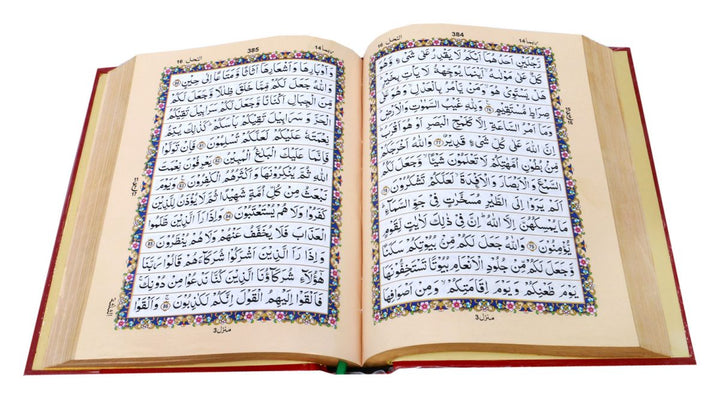 ربما ١٤
384
النحل ١٦
رَّجُلَيْنِ اَحَدُهُمَآ اَبْكَمُ لَا يَقْدِرُ عَلٰى شَىْءٍ وَّهُوَ
كَلٌّ عَلٰى مَوْلٰىهُ اَيْنَمَا يُوَجِّهْهُّ لَا يَاْتِ بِخَيْرٍ هَلْ
يَسْتَوِىْ هُوَ وَمَنْ يَّاْمُرُ بِالْعَدْلِ وَهُوَ عَلٰى
صِرَاطٍ مُّسْتَقِيْمٍ ۞ وَلِلّٰهِ غَيْبُ السَّمٰوٰتِ وَالْاَرْضِ وَ
مَآ اَمْرُ السَّاعَةِ اِلَّا كَلَمْحِ الْبَصَرِ اَوْ هُوَ اَقْرَبُ
اِنَّ اللّٰهَ عَلٰى كُلِّ شَىْءٍ قَدِيْرٌ ۞ وَاللّٰهُ اَخْرَجَكُمْ
مِّنْ بُطُوْنِ اُمَّهٰتِكُمْ لَا تَعْلَمُوْنَ شَيْئًا وَّجَعَلَ لَكُمُ
السَّمْعَ وَالْاَبْصَارَ وَالْاَفْئِدَةَ لَعَلَّكُمْ تَشْكُرُوْنَ ۞
اَلَمْ يَرَوْا اِلَى الطَّيْرِ مُسَخَّرٰتٍ فِىْ جَوِّ السَّمَآءِ
مَا يُمْسِكُهُنَّ اِلَّا اللّٰهُ اِنَّ فِىْ ذٰلِكَ لَاٰيٰتٍ لِّقَوْمٍ
يُّؤْمِنُوْنَ ۞ وَاللّٰهُ جَعَلَ لَكُمْ مِّنْ بُيُوْتِكُمْ سَكَنًا
وَّجَعَلَ لَكُمْ مِّنْ جُلُوْدِ الْاَنْعَامِ بُيُوْتًا تَسْتَخِفُّوْنَهَا
يَوْمَ ظَعْنِكُمْ وَيَوْمَ اِقَامَتِكُمْ وَمِنْ اَصْوَافِهَا
منزل ٣
ربما ١٤
385
النحل ١٦
وَاَوْبَارِهَا وَاَشْعَارِهَآ اَثَاثًا وَّمَتَاعًا اِلٰى حِيْنٍ ۞
وَاللّٰهُ جَعَلَ لَكُمْ مِّمَّا خَلَقَ ظِلٰلًا وَّجَعَلَ لَكُمْ
مِّنَ الْجِبَالِ اَكْنَانًا وَّجَعَلَ لَكُمْ سَرَابِيْلَ تَقِيْكُمُ
الْحَرَّ وَسَرَابِيْلَ تَقِيْكُمْ بَاْسَكُمْ كَذٰلِكَ يُتِمُّ
نِعْمَتَهٗ عَلَيْكُمْ لَعَلَّكُمْ تُسْلِمُوْنَ ۞ فَاِنْ تَوَلَّوْا
فَاِنَّمَا عَلَيْكَ الْبَلٰغُ الْمُبِيْنُ ۞ يَعْرِفُوْنَ نِعْمَتَ
اللّٰهِ ثُمَّ يُنْكِرُوْنَهَا وَاَكْثَرُهُمُ الْكٰفِرُوْنَ ۞ وَيَوْمَ
نَبْعَثُ مِنْ كُلِّ اُمَّةٍ شَهِيْدًا ثُمَّ لَا يُؤْذَنُ لِلَّذِيْنَ
كَفَرُوْا وَلَا هُمْ يُسْتَعْتَبُوْنَ ۞ وَاِذَا رَاَ الَّذِيْنَ ظَلَمُوا
الْعَذَابَ فَلَا يُخَفَّفُ عَنْهُمْ وَلَا هُمْ يُنْظَرُوْنَ ۞
وَاِذَا رَاَ الَّذِيْنَ اَشْرَكُوْا شُرَكَآءَهُمْ قَالُوْا رَبَّنَا
هٰٓؤُلَآءِ شُرَكَآؤُنَا الَّذِيْنَ كُنَّا نَدْعُوْا مِنْ دُوْنِكَ
فَاَلْقَوْا اِلَيْهِمُ الْقَوْلَ اِنَّكُمْ لَكٰذِبُوْنَ ۞ وَاَلْقَوْا
منزل ٣